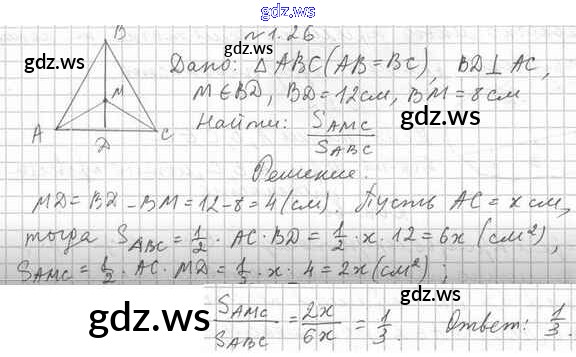 gdz.ws
№1.26
gdz.ws
Дано: △ ABC (AB = BC), BD ⊥ AC,
M ∈ BD, BD = 12 см, BM = 8 см
Найти: S_AMC / S_ABC
gdz.ws
B
M
A
D
C
Решение.
MD = BD - BM = 12 - 8 = 4 (см). Пусть AC = x см,
тогда S_ABC = 1/2 · AC · BD = 1/2 · x · 12 = 6x (см²),
S_AMC = 1/2 · AC · MD = 1/3 · x · 4 = 2x (см²);
gdz.ws
S_AMC / S_ABC = 2x / 6x = 1/3. Ответ: 1/3.
gdz.ws